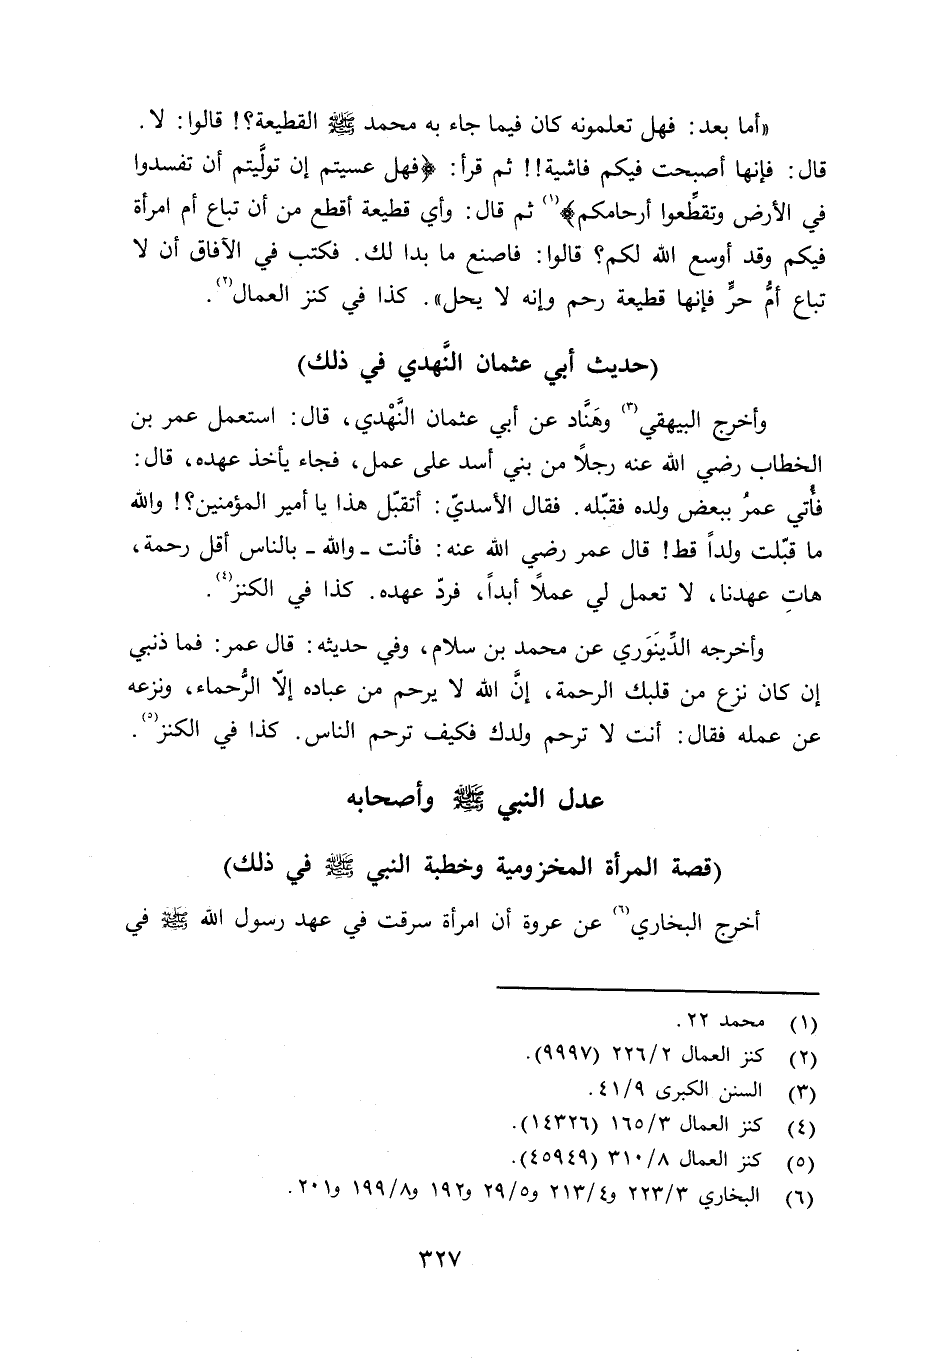 «أما بعد: فهل تعلمونه كان فيما جاء به محمد ﷺ القطيعة؟! قالوا: لا.
قال: فإنها أصبحت فيكم فاشية!! ثم قرأ: ﴿فهل عسيتم إن تولَّيتم أن تفسدوا
في الأرض وتقطِّعوا أرحامكم﴾(١) ثم قال: وأي قطيعة أقطع من أن تباع أم امرأة
فيكم وقد أوسع الله لكم؟ قالوا: فاصنع ما بدا لك. فكتب في الآفاق أن لا
تباع أمُّ حرٍّ فإنها قطيعة رحم وإنه لا يحل». كذا في كنز العمال(٢).
(حديث أبي عثمان النَّهدي في ذلك)
وأخرج البيهقي(٣) وهَنَّاد عن أبي عثمان النَّهْدي، قال: استعمل عمر بن
الخطاب رضي الله عنه رجلاً من بني أسد على عمل، فجاء يأخذ عهده، قال:
فأُتي عمرُ ببعض ولده فقبّله. فقال الأسديّ: أتقبّل هذا يا أمير المؤمنين؟! والله
ما قبّلت ولداً قط! قال عمر رضي الله عنه: فأنت ـ والله ـ بالناس أقل رحمة،
هاتِ عهدنا، لا تعمل لي عملاً أبداً، فردّ عهده. كذا في الكنز(٤).
وأخرجه الدِّينَوَري عن محمد بن سلام، وفي حديثه: قال عمر: فما ذنبي
إن كان نزع من قلبك الرحمة، إنَّ الله لا يرحم من عباده إلّا الرُّحماء، ونزعه
عن عمله فقال: أنت لا ترحم ولدك فكيف ترحم الناس. كذا في الكنز(٥).
عدل النبي ﷺ وأصحابه
(قصة المرأة المخزومية وخطبة النبي ﷺ في ذلك)
أخرج البخاري(٦) عن عروة أن امرأة سرقت في عهد رسول الله ﷺ في
(١) محمد ٢٢.
(٢) كنز العمال ٢٢٦/٢ (٩٩٩٧).
(٣) السنن الكبرى ٤١/٩.
(٤) كنز العمال ١٦٥/٣ (١٤٣٢٦).
(٥) كنز العمال ٣١٠/٨ (٤٥٩٤٩).
(٦) البخاري ٢٢٣/٣ و٢١٣/٤ و٢٩/٥ و١٩٢ و١٩٩/٨ و٢٠١.
٣٢٧